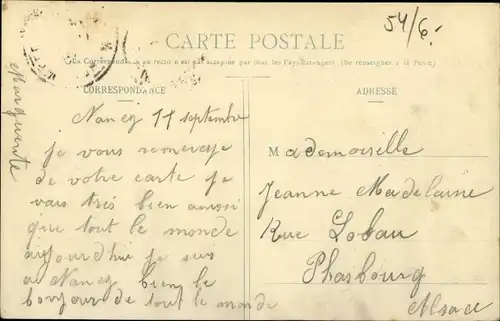 54/6.
CARTE POSTALE
La Correspondance au recto n'est pas acceptée par tous les Pays Etrangers. (Se renseigner à la Poste)
CORRESPONDANCE
ADRESSE
Marguerite
Nancy 11 septembre
je vous remercie
de votre carte je
vais très bien aussi
que tout le monde
aujourd'hui je suis
a Nancy bien le
bonjour de tout le monde
Mademoiselle
Jeanne Madelaine
Rue Lobau
Phasbourg
Alsace